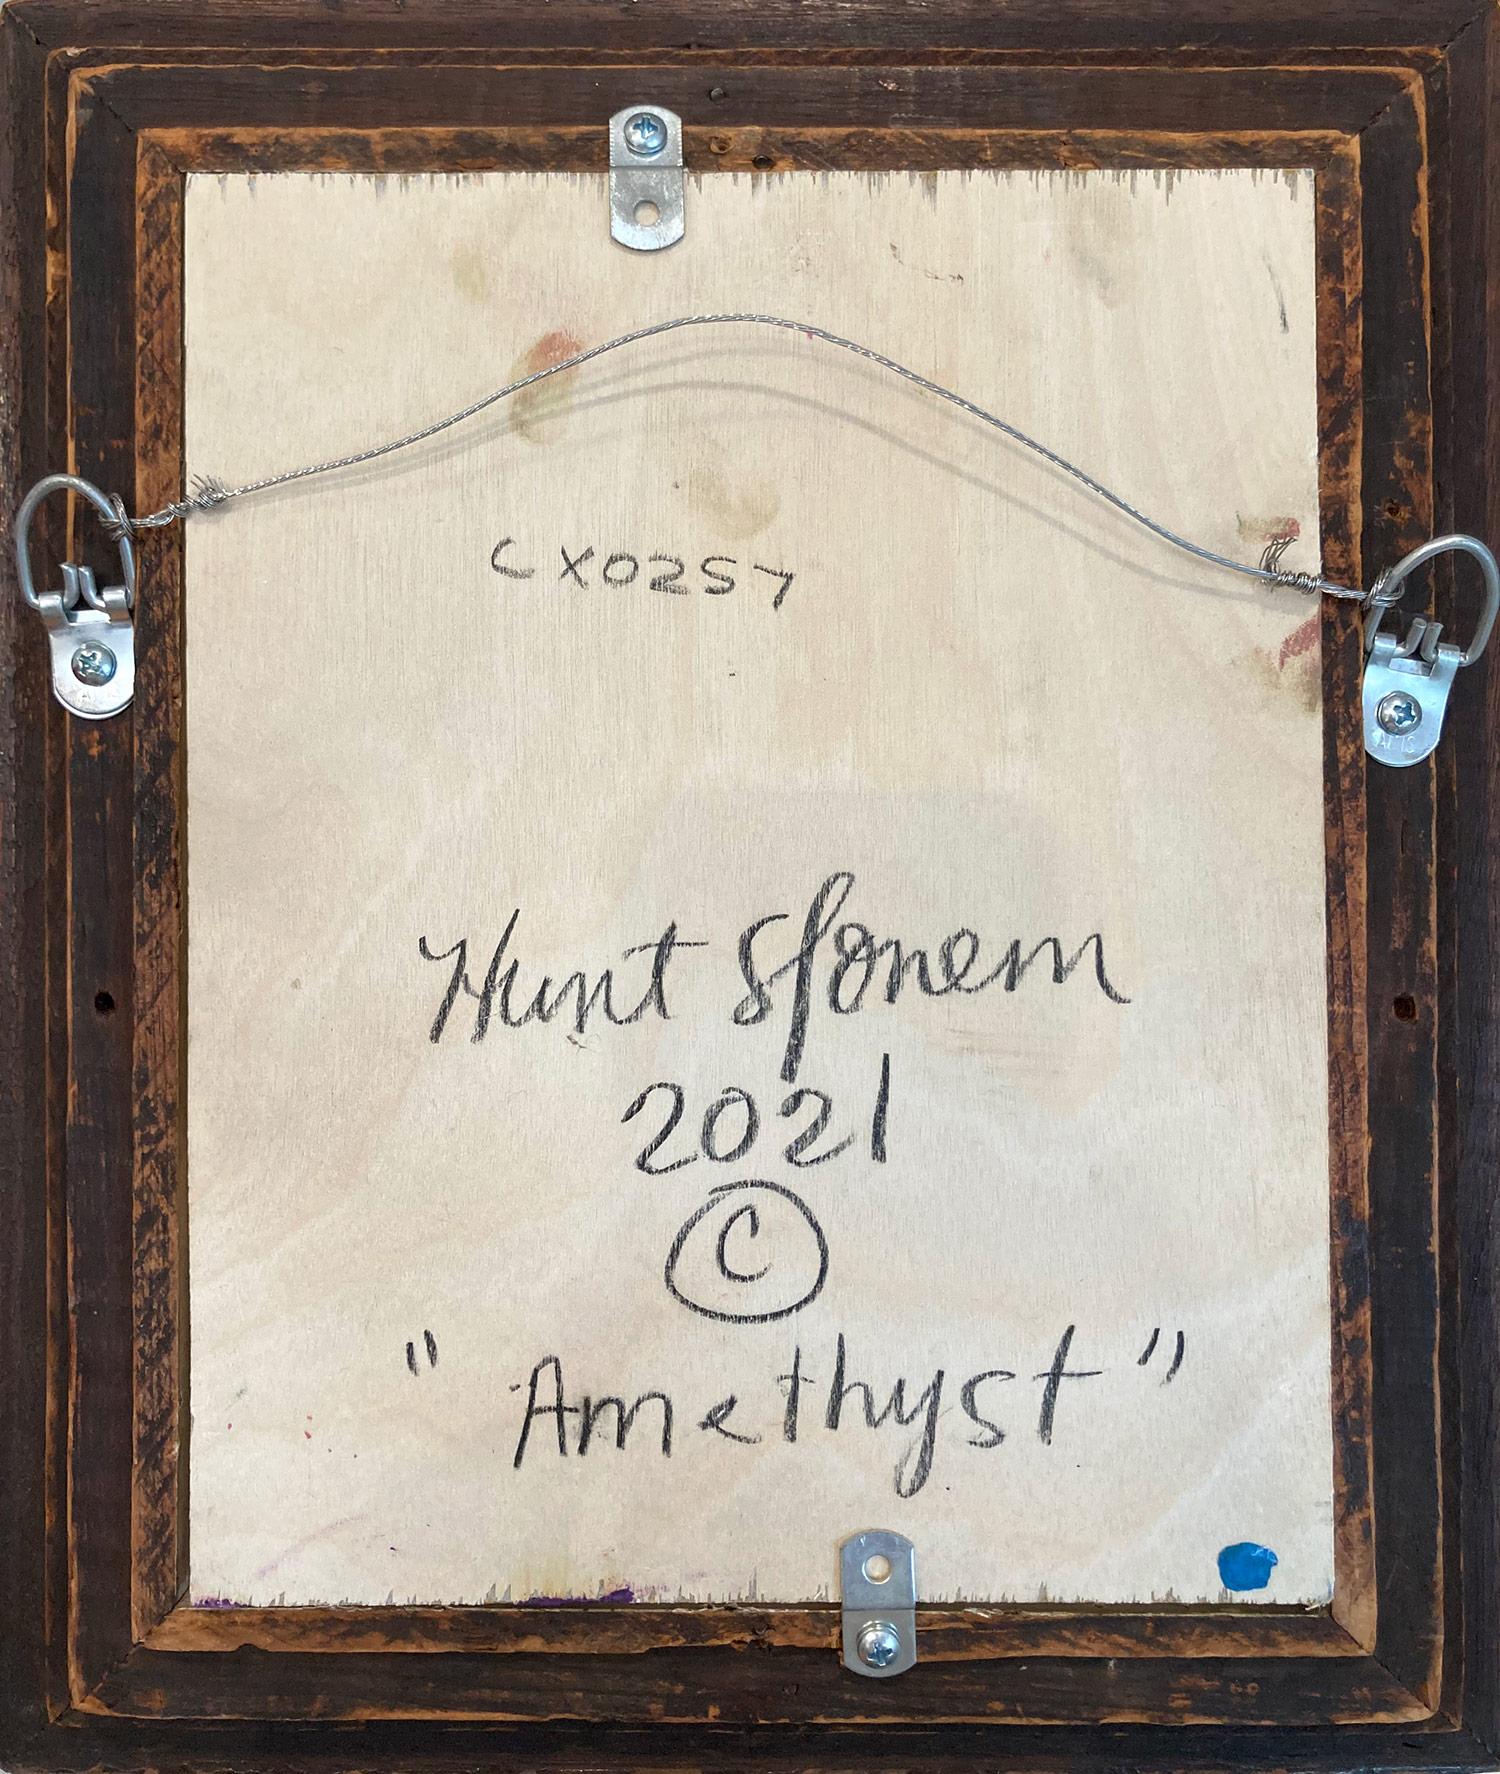 CX0257
Hunt Slonem
2021
©
"Amethyst"